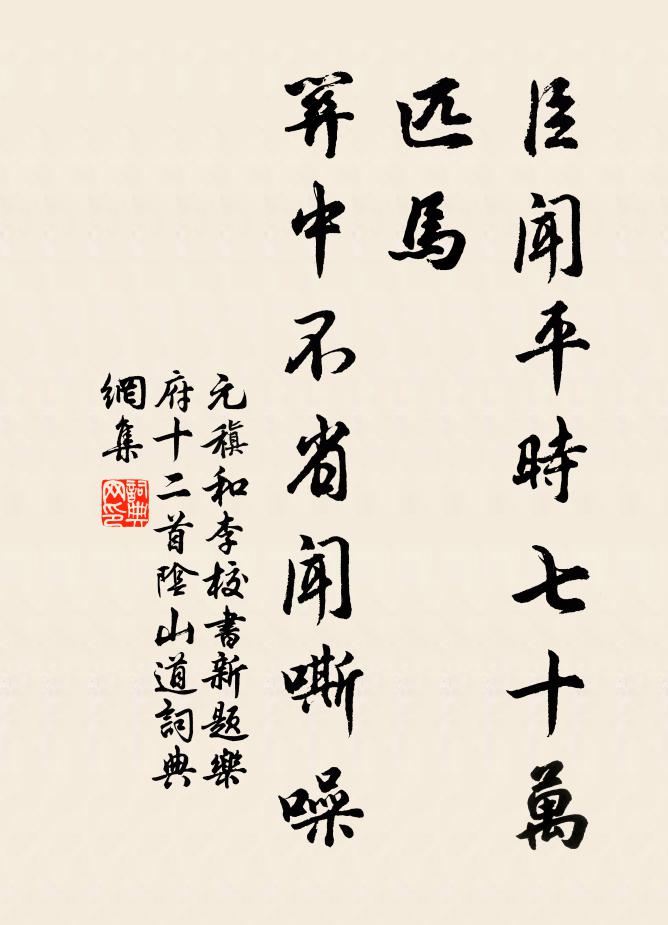 臣聞平時七十萬
匹馬
關中不省聞嘶噪
元稹和李校書新題樂
府十二首陰山道詞典
網集
詞典
网印